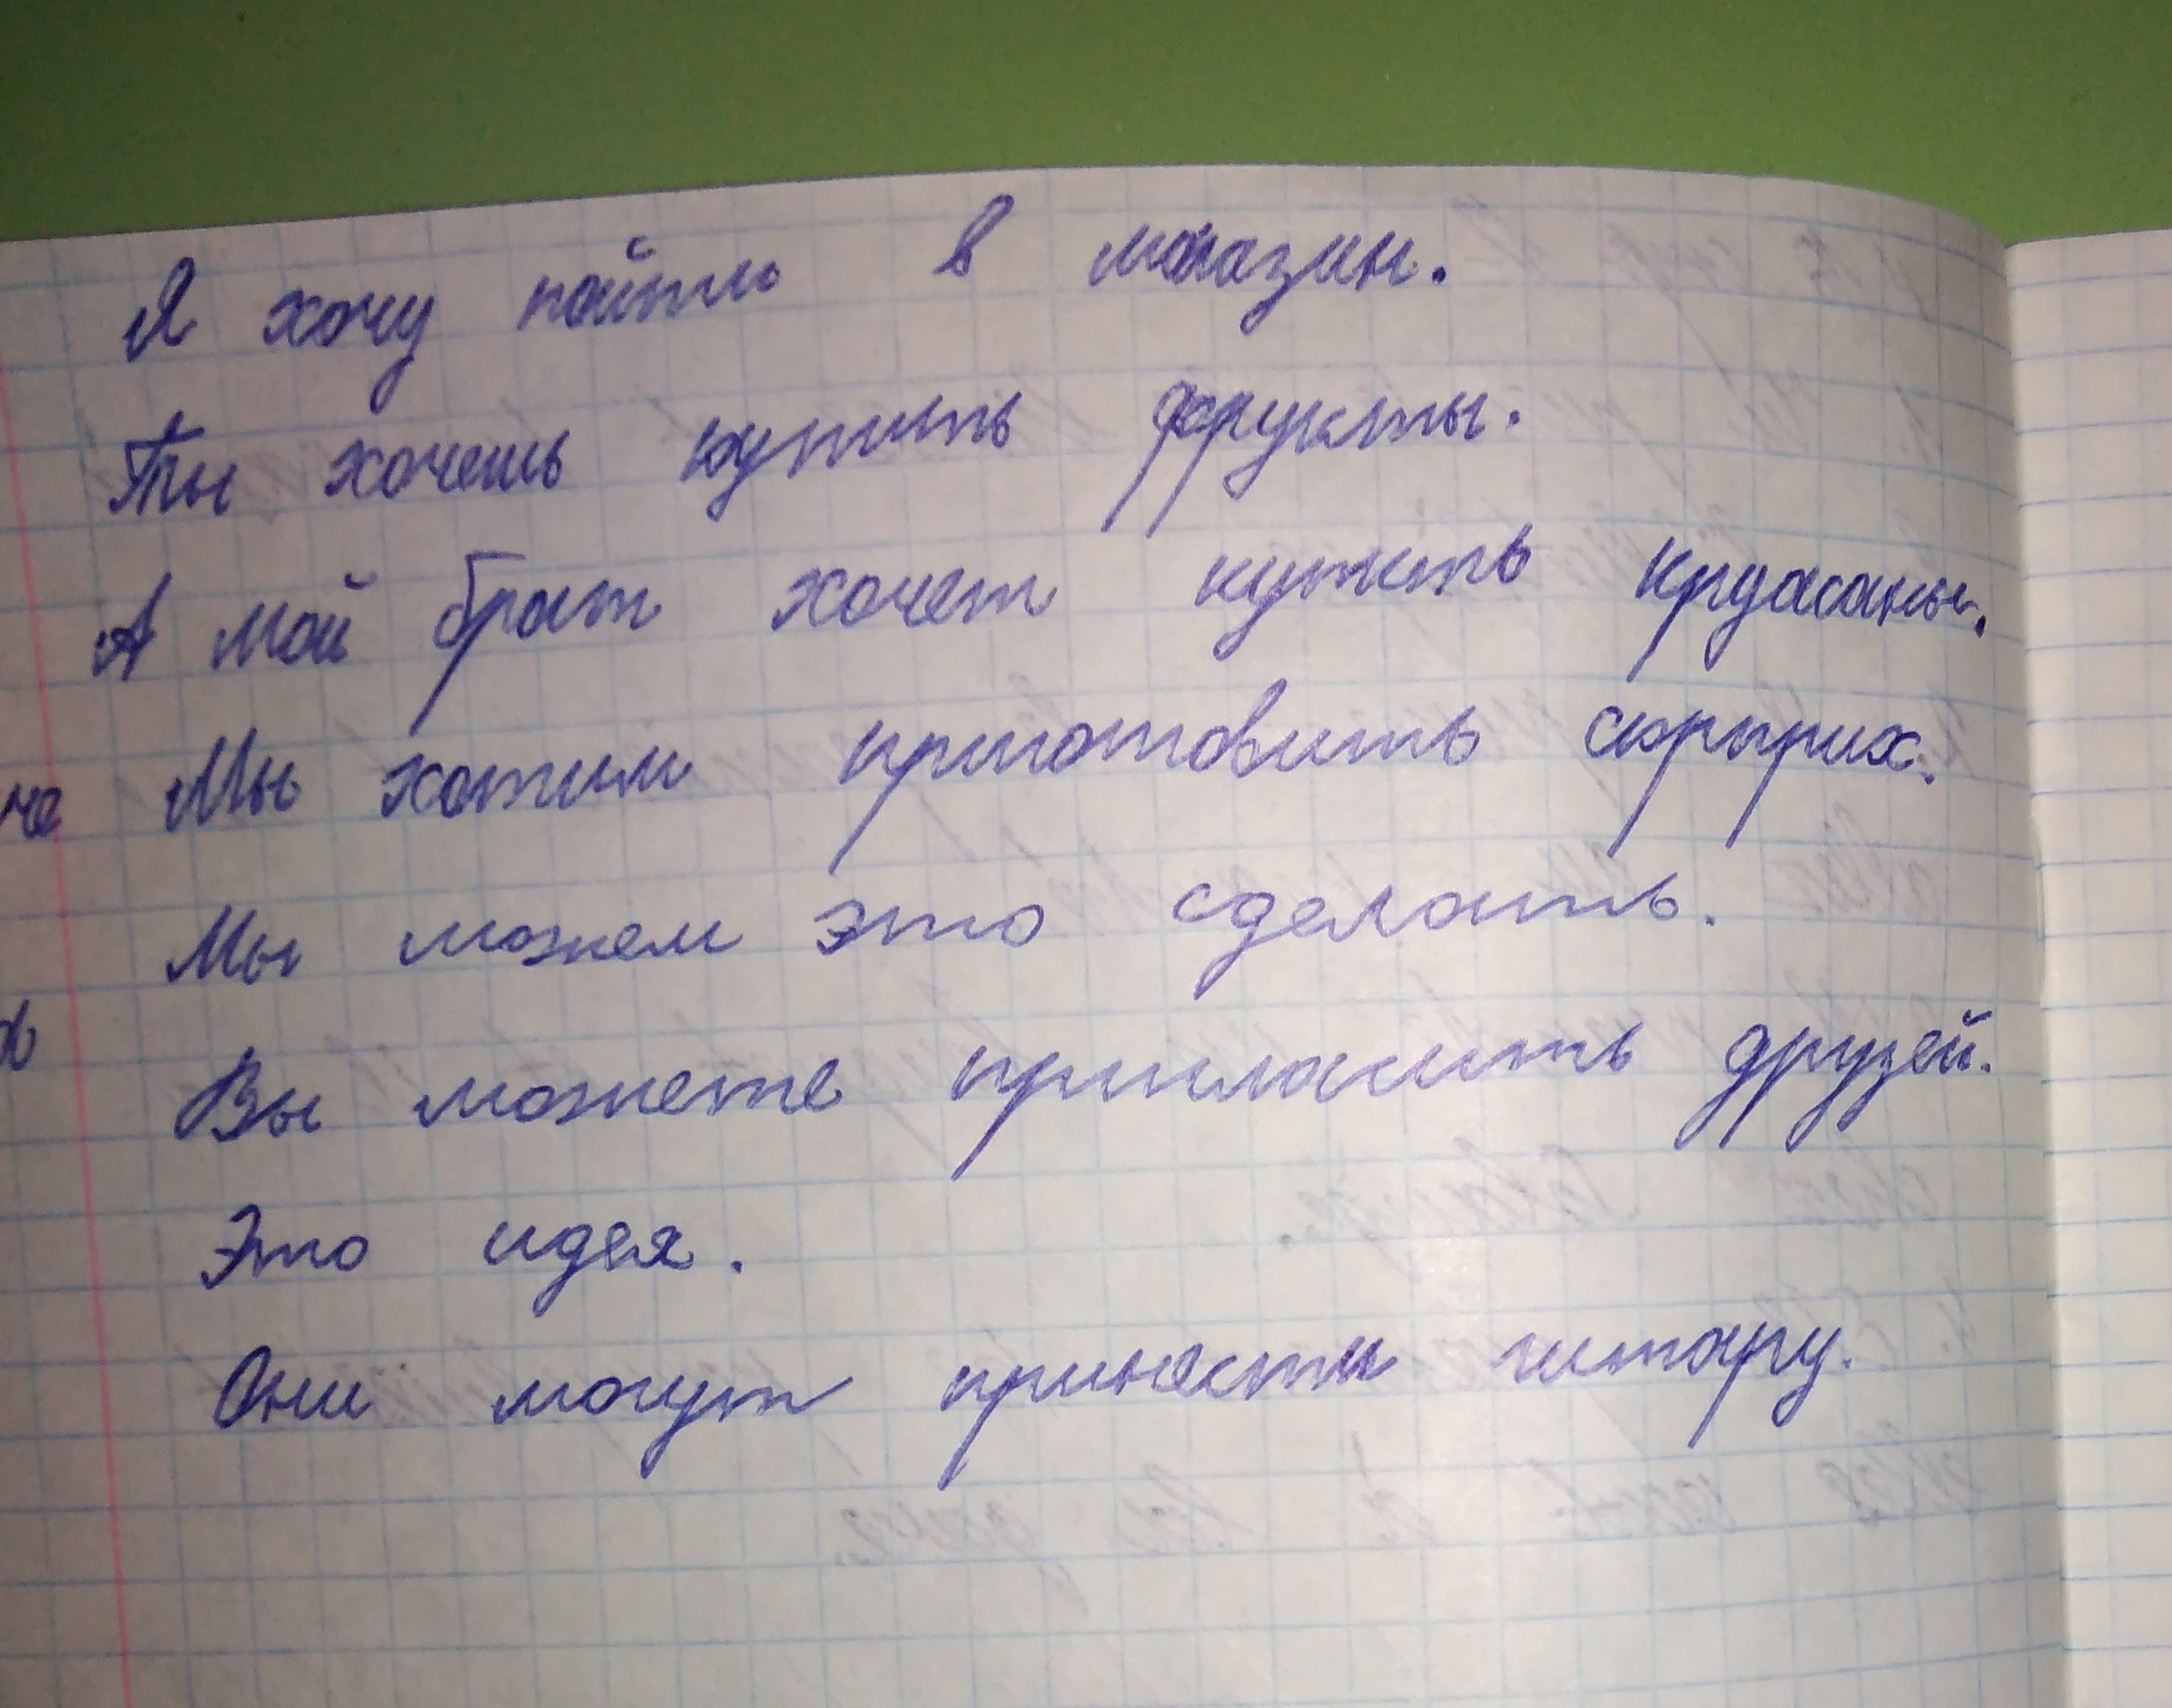 Я хочу пойти в магазин.
Ты хочешь купить фрукты.
А мой брат хочет купить круасаны.
Мы хотим приготовить сюрприз.
Мы можем это сделать.
Вы можете пригласить друзей.
Это идея.
Они могут принести гитару.